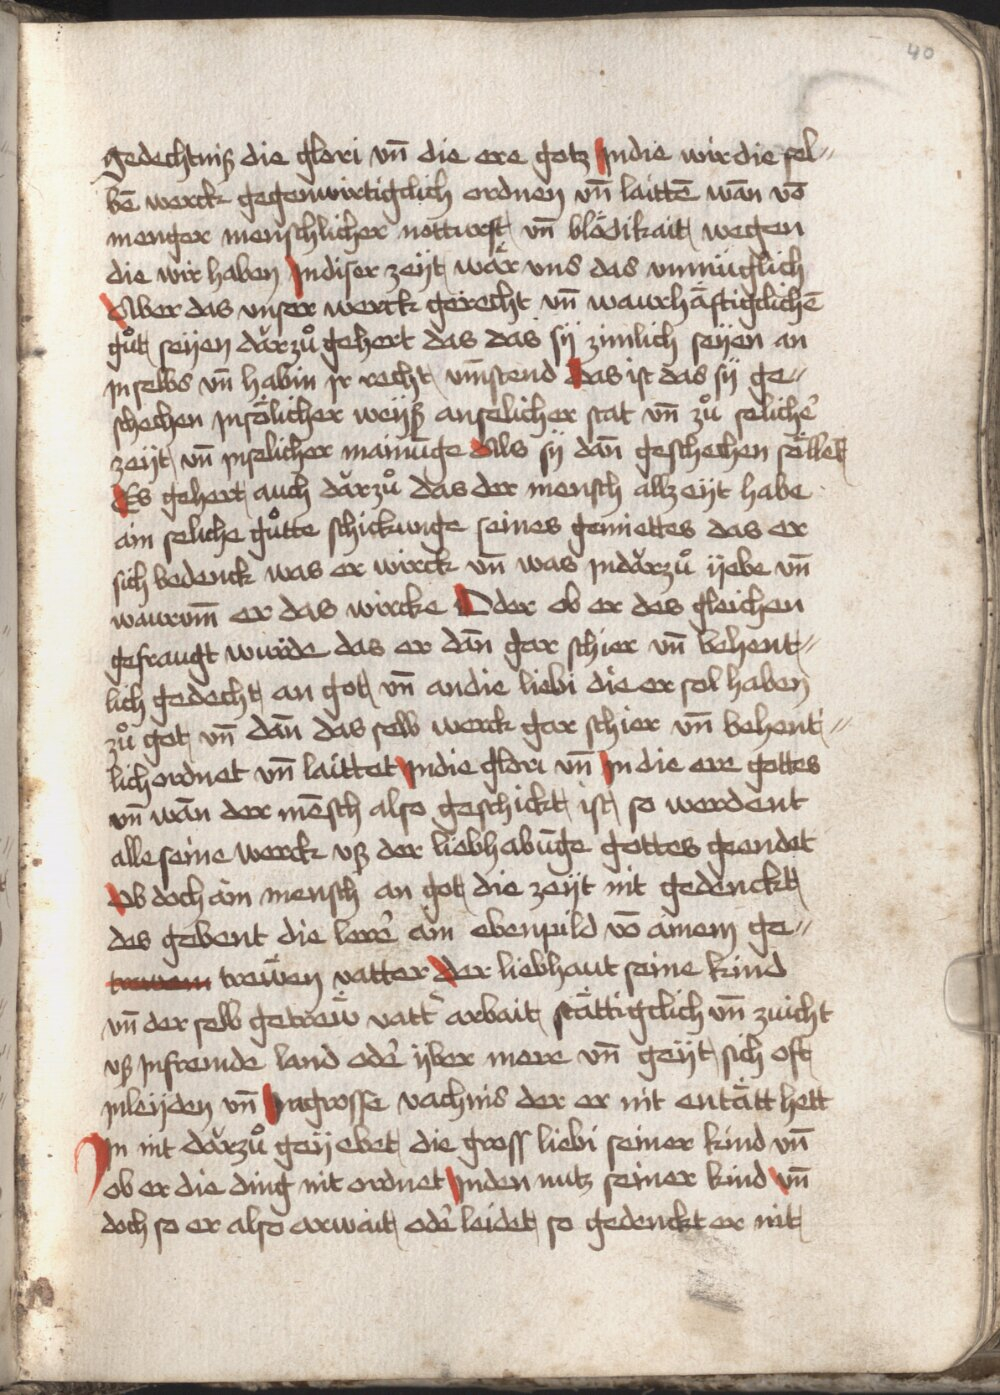 40
gedechtniß die glori vn̄ die ere gotz Jn die wir die sol-
bē werck gegenwirtigclich ordnen vn̄ laittē wān vō
menger menschlicher notturft vn̄ blödikait wegen
die wir haben Jn diser zeijt wär vns das vnmuglich
Aber das vnser werck gerecht vn̄ waurhäftigclichē
gůt seijen därzů gehert das das sÿ zimlich seijen an
jn selbs vn̄ habin jr recht vm̄stend Das ist das sÿ ge-
schechen jnsölicher weijß anselicher stat vn̄ zů selichē
zeijt vn̄ jnselicher mainūge Als sÿ dān geschechen söllen
Es gehert auch därzů das der mensch allzeijt habe
ain seliche gůtte schickunge seines gemiettes das er
sich bedenck was er wirck vn̄ was jn därzů ijebe vn̄
waurvm̄ er das wircke Oder ob er des gleichen
gefraugt wurde das er dān gar schier vn̄ behent-
lich gedecht an got vn̄ an die liebi die er sol haben
zů got vn̄ dān das selb werck gar schier vn̄ behent-
lich ordnet vn̄ laittet Jn die glori vn̄ Jn die ere gottes
vn̄ wān der mēsch also geschickt ist so werdent
alle seine werck vß der liebhabūge gottes geendet
Ob doch ain mensch an got die zeijt nit gedenckt
des gebent die lerē ain ebenpild vō ainem ge-
trewen vatter Der liebhaut seine kind
vn̄ der selb getrew vatt̄ arbait stättigclich vn̄ zuicht
vß jn fremde land odē ijber mere vn̄ geijt sich oft
jnleijden vn̄ Jn grosse vachnis der er nit entätt hett
Jn nit därzů geijebet die gross liebi seiner kind vn̄
ob er die ding nit ordnet Jn den nutz seiner kind vn̄
doch so er also arwait odē leidet so gedenckt er nit